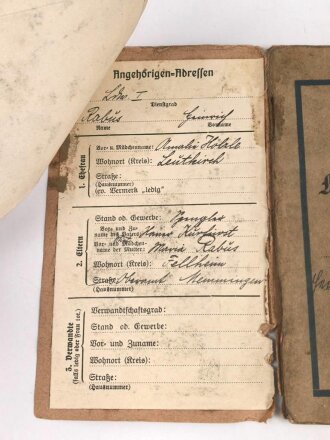 Angehörigen-Adressen
Ldw. I
Dienstgrad
Rabus Heinrich
Name Vorname
1. Ehefrau
Vor- u. Mädchenname: Amalie Hölzle
Wohnort (Kreis): Leutkirch
Straße:
(Hausnummer)
ev. Vermerk „ledig"
2. Eltern
Stand od. Gewerbe:
Vor- und Zuname des Vaters:
Vor- und Mädchenname der Mutter: Maria Rabus
Wohnort (Kreis): Fellheim
Straße: Oberamt Memmingen
(Hausnummer)
3. Verwandte
(falls ledig oder Frau tot.)
Verwandtschaftsgrad:
Stand od. Gewerbe:
Vor- und Zuname:
Wohnort (Kreis):
Straße:
(Hausnummer)